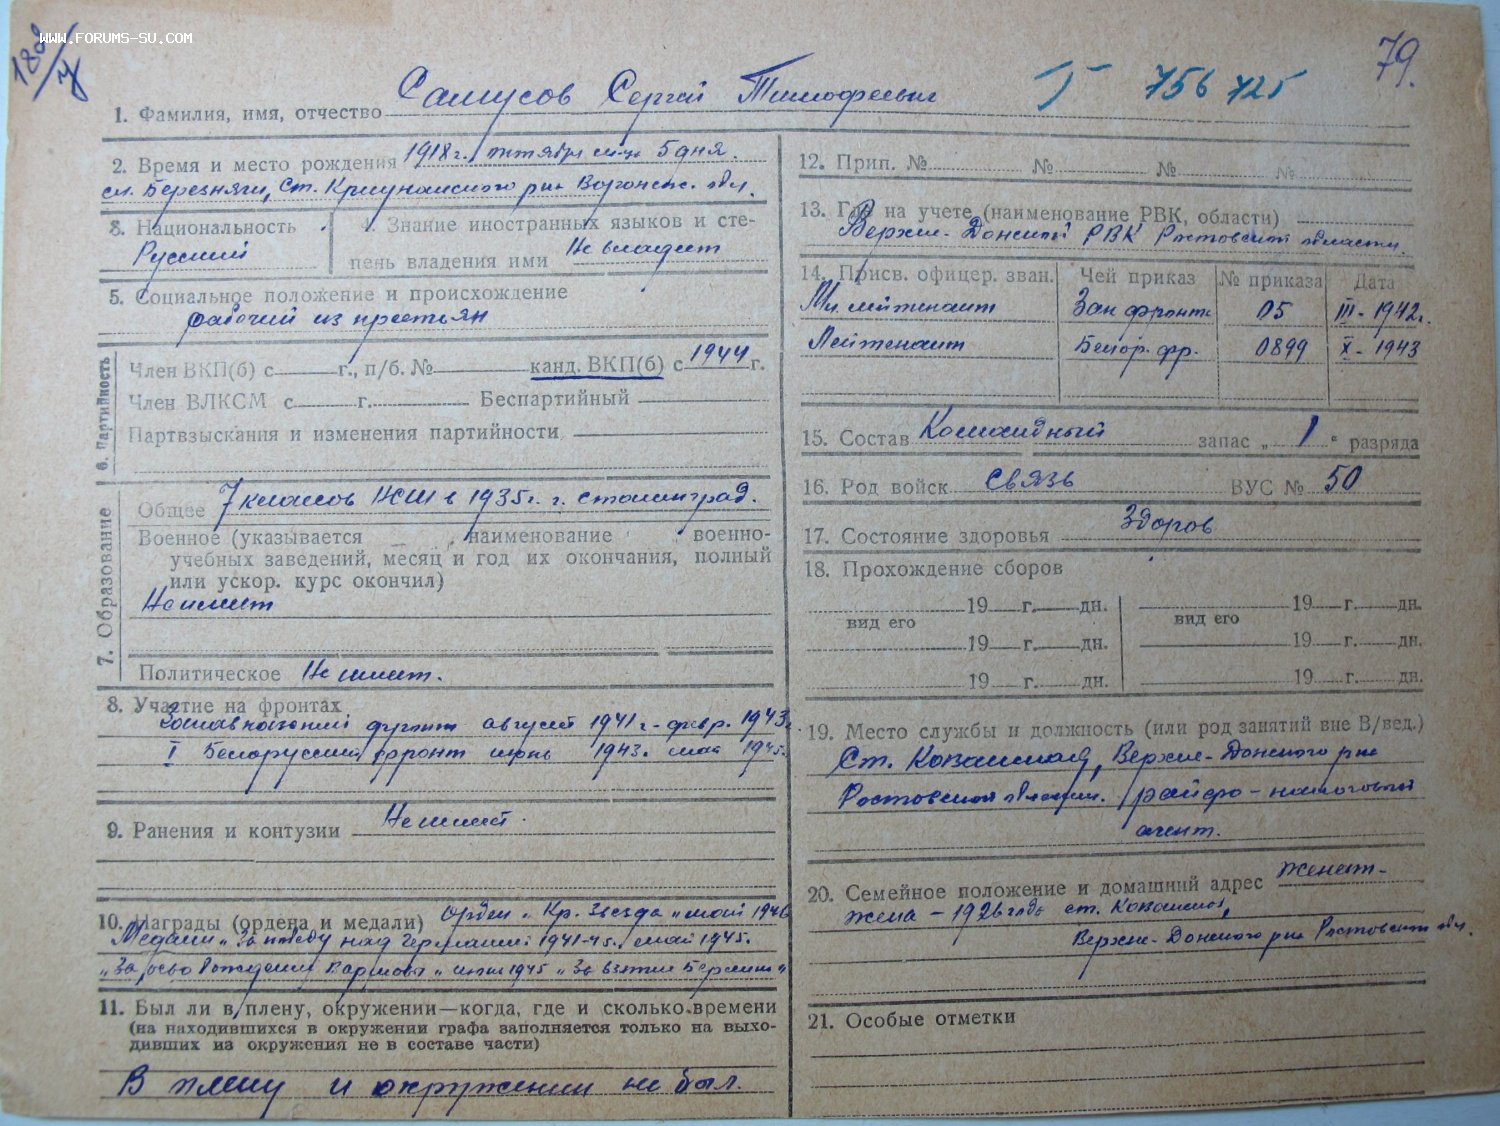 WWW.FORUMS-SU.COM
79.
1. Фамилия, имя, отчество Самусов Сергей Тимофеевич Г 756725
2. Время и место рождения 1918 г. октября м-ца 5 дня.
сл. Березняги, Ст. Криушанского р-на Воронеж. обл.
3. Национальность
Русский
4. Знание иностранных языков и сте-
пень владения ими Не владеет
5. Социальное положение и происхождение
рабочий из крестьян
6. Партийность
Член ВКП(б) с г., п/б. № канд. ВКП(б) с 1944 г.
Член ВЛКСМ с г. Беспартийный
Партвзыскания и изменения партийности
7. Образование
Общее 7 классов НСШ в 1935 г. г. Сталинград.
Военное (указывается наименование военно-
учебных заведений, месяц и год их окончания, полный
или ускор. курс окончил)
Не имеет
Политическое Не имеет.
8. Участие на фронтах
Западный фронт август 1941 г. - февр. 1943 г.
I Белорусский фронт июнь 1943. май 1945.
9. Ранения и контузии Не имеет.
10. Награды (ордена и медали) Орден „Кр. Звезда" май 1946
Медали „За победу над Германией 1941-45. май 1945.
„За осво Варшавы" 1945 „За взятие Берлина"
11. Был ли в плену, окружении—когда, где и сколько времени
(на находившихся в окружении графа заполняется только на выхо-
дивших из окружения не в составе части)
В плену и окружении не был.
12. Прип. № № № №
13. Где на учете (наименование РВК, области)
Верхне-Донской РВК Ростовской области.
14. Присв. офицер. зван. Чей приказ № приказа Дата
Мл. лейтенант Зап фронта 05 III - 1942 г.
Лейтенант Белор. фр. 0899 X - 1943
15. Состав Командный запас „ 1 " разряда
16. Род войск Связь ВУС № 50
17. Состояние здоровья Здоров
18. Прохождение сборов
19 г. дн. 19 г. дн.
вид его вид его
19 г. дн. 19 г. дн.
19 г. дн. 19 г. дн.
19. Место службы и должность (или род занятий вне В/вед.)
Ст. Казанская, Верхне-Донского р-на
Ростовской области. райфо - налоговый
агент.
20. Семейное положение и домашний адрес женат-
жена - 1926 года ст. Казанская,
Верхне-Донского р-на Ростовской обл.
21. Особые отметки